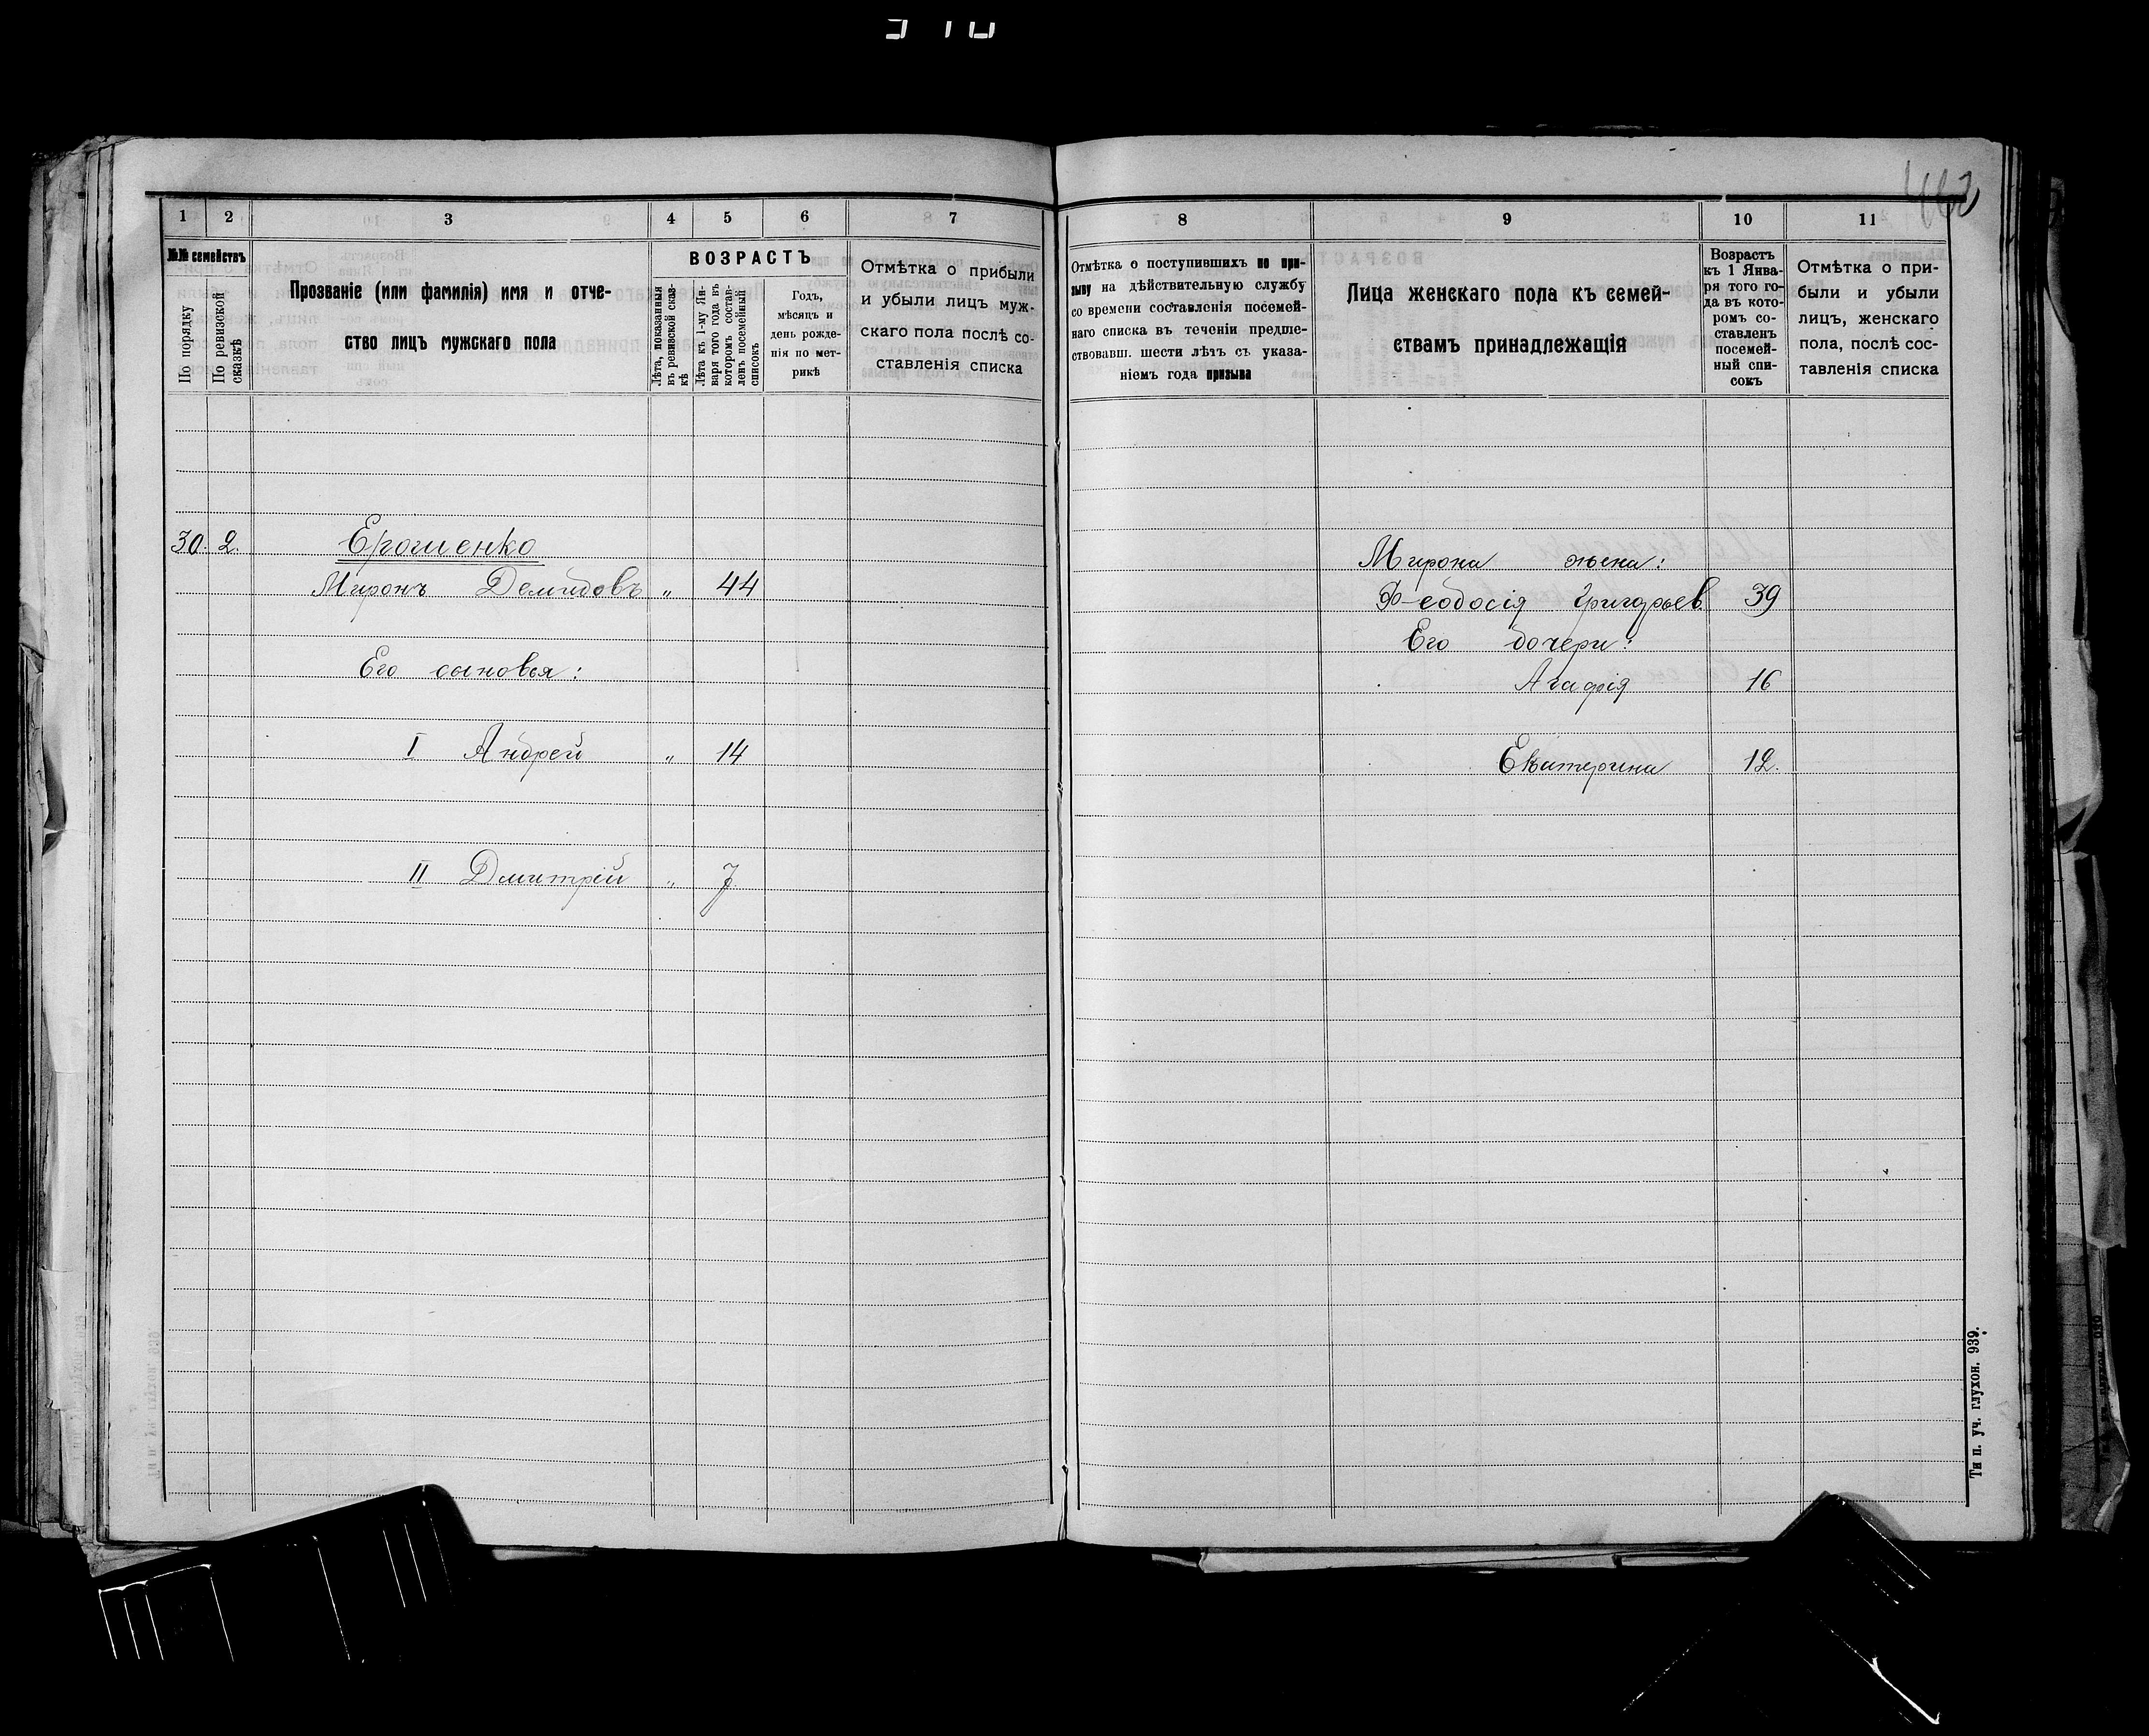 1 2 3 4 5 6 7
№№ семействъ
По порядку
По ревизской сказкѣ
Прозваніе (или фамилія) имя и отче-
ство лицъ мужскаго пола
ВОЗРАСТЪ
Лѣта, показанныя
въ ревизской сказ-
кѣ
Лѣта къ 1-му Ян-
варя того года въ
которомъ состав-
ленъ посемейный
списокъ
Годъ,
мѣсяцъ и
день рожде-
нія по мет-
рикѣ
Отмѣтка о прибыли
и убыли лицъ муж-
скаго пола послѣ со-
ставленія списка
30. 2. Ерошенко
Миронъ Демидовъ „ 44
Его сыновья:
I Андрей „ 14
II Дмитрій „ 7
8 9 10 11
Отмѣтка о поступившихъ по при-
зыву на дѣйствительную службу
со времени составленія посемей-
наго списка въ теченіи предше-
ствовавш. шести лѣтъ съ указа-
ніемъ года призыва
Лица женскаго пола къ семей-
ствамъ принадлежащія
Возрастъ
къ 1 Янва-
ря того го-
да въ кото-
ромъ со-
ставленъ
посемей-
ный спи-
сокъ
Отмѣтка о при-
были и убыли
лицъ, женскаго
пола, послѣ сос-
тавленія списка
Мирона жена:
Феодосія Григорьев. 39
Его дочери:
Агафія 16
Екатерина 12.
Ти п. уч. глухон. 939.